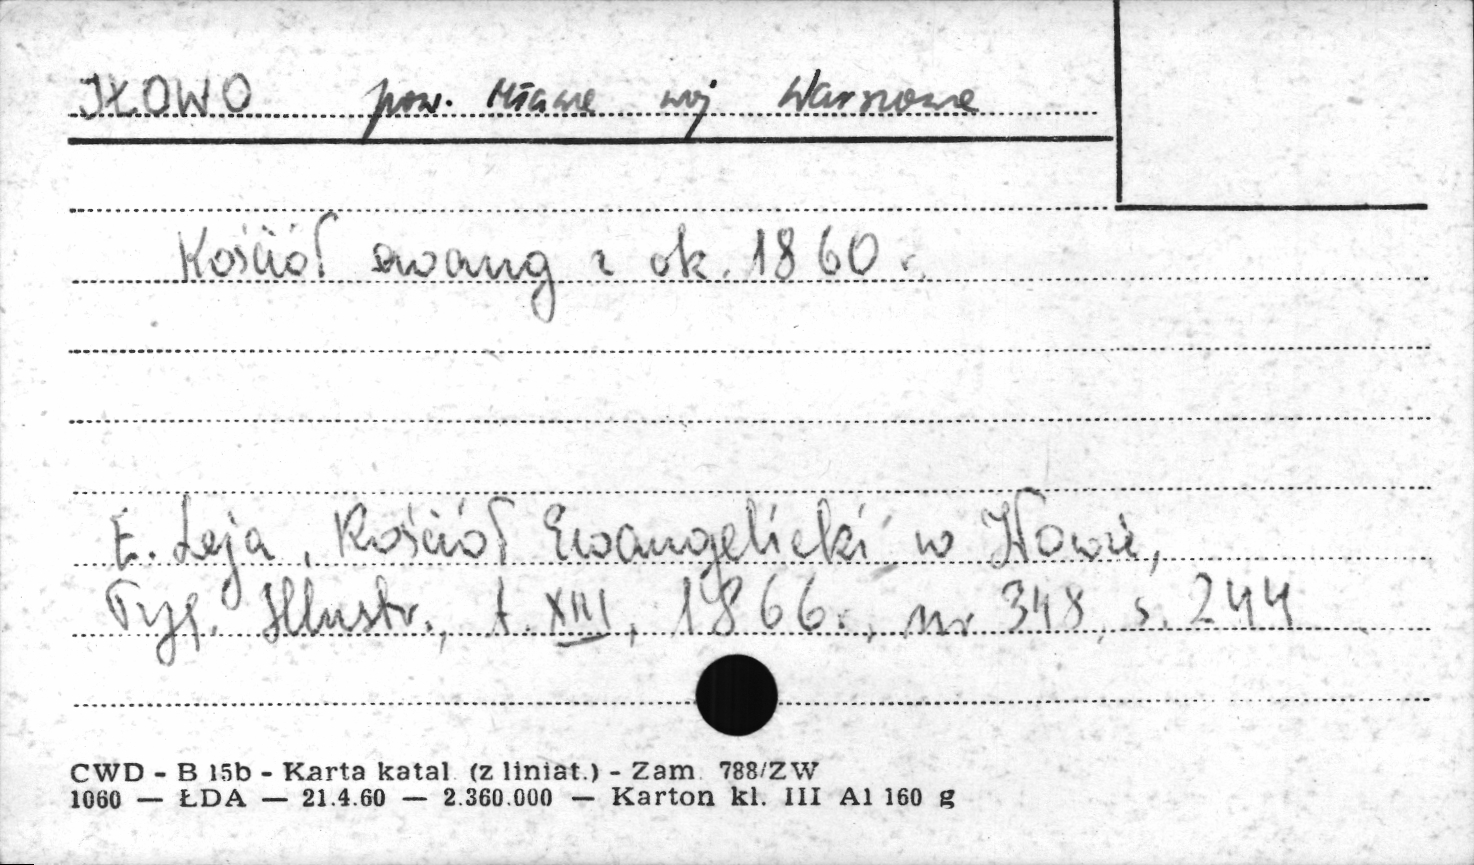 IŁOWO pow. Mława woj Warszawa
Kościół ewang z ok. 1860 r.
E. Leja, Kościół Ewangelicki w Iłowie,
Tyg. Illustr., t. XIII, 1866r., nr 348, s. 244
CWD - B 15b - Karta katal. (z liniat.) - Zam. 788/ZW
1060 — ŁDA — 21.4.60 — 2.360.000 — Karton kl. III A1 160 g